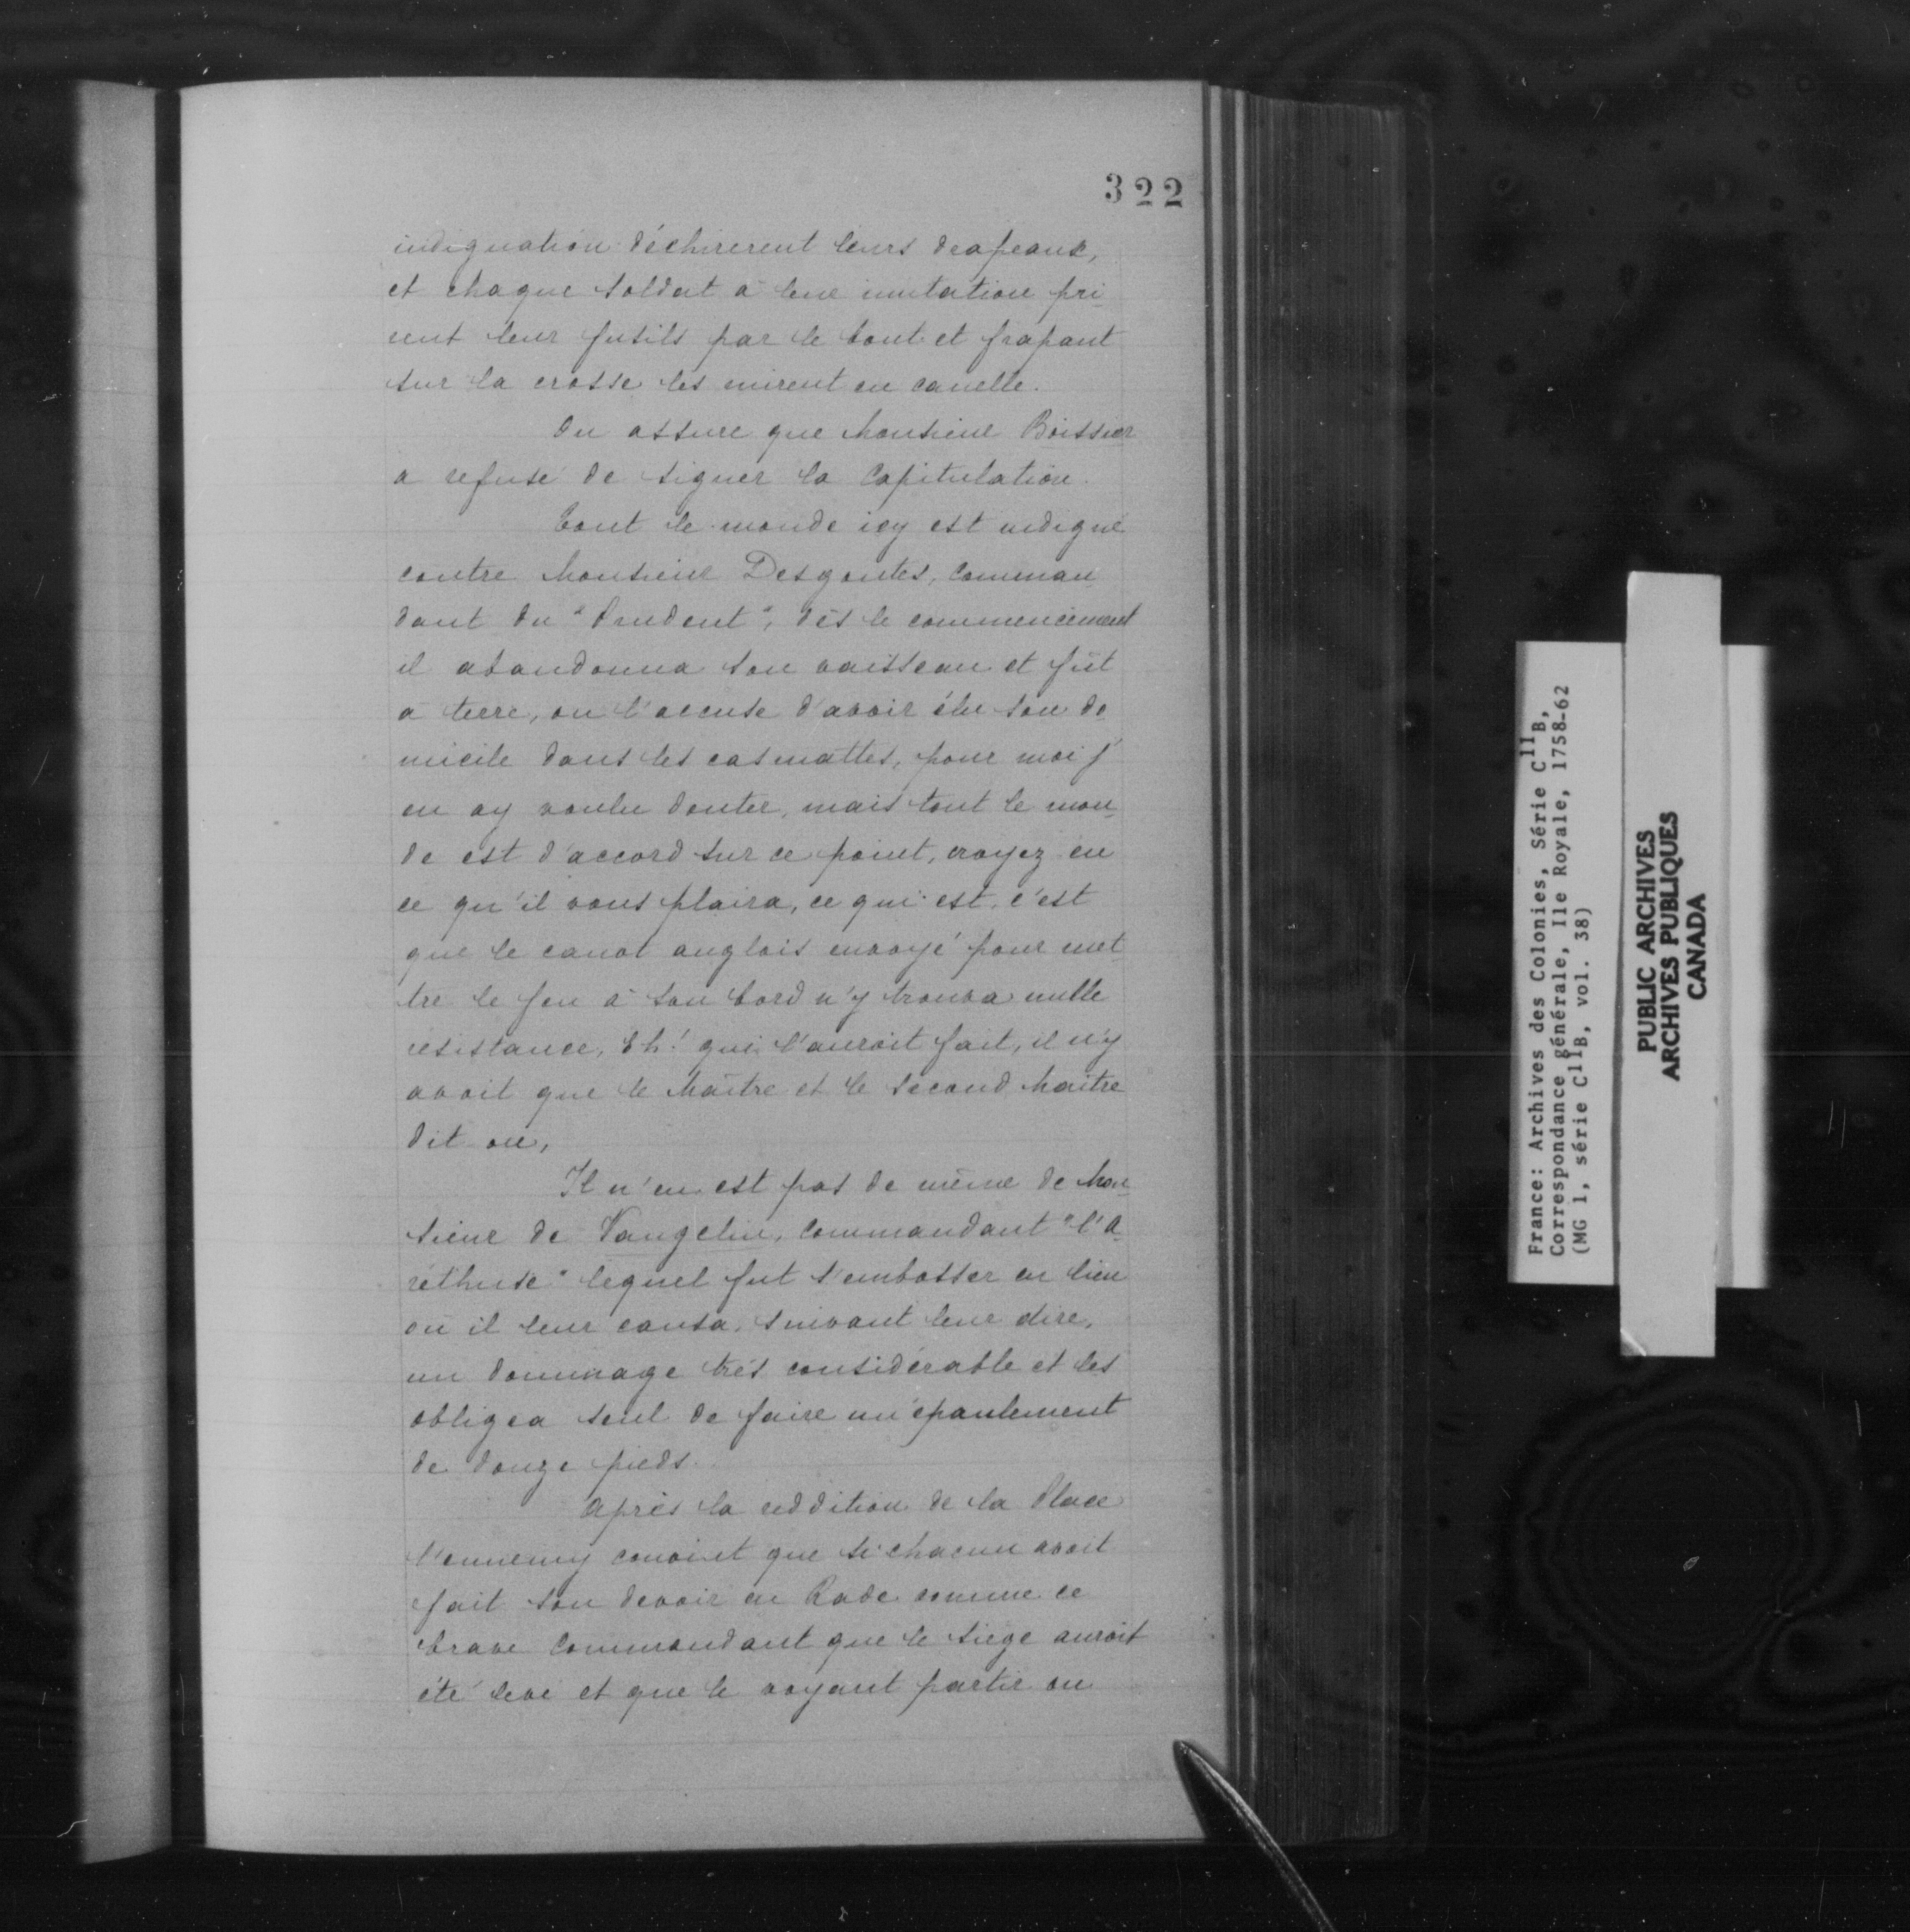 322
indignation déchirerent leurs drapeaux,
et chaque soldat à leur imitation pri-
rent leur fusils par le bout et frapant
sur la crosse les mirent en canelle.
On assure que Monsieur Boissier
a refusé de signer la Capitulation.
Tout le monde icy est indigné
contre Monsieur Desgoutes, Comman-
dant du "Prudent", dès le commencement
il abandonna son vaisseau et fût
a terre, on l'accuse d'avoir élu son do-
micile dans les casmattes, pour moi j'
en ay voulu douter, mais tout le mon-
de est d'accord sur ce point, croyez en
ce qu'il vous plaira, ce qui est, c'est
que le canot anglois envoyé pour met-
tre le feu à son bord n'y trouva nulle
résistance, Eh! qui l'auroit fait, il n'y
avoit que le Maître et le Second Maitre
dit on,
Il n'en est pas de même de Mon-
sieur de Vaugelin, Commandant "l'A-
réthuse" lequel fut s'embosser en lieu
où il leur causa, suivant leur dire,
un dommage très considérable et les
obligea seul de faire un épaulement
de douze pieds.
Après la reddition de la Place
l'ennemy convint que si chacun avoit
fait son devoir en Rade comme ce
brave Commandant que le siège auroit
été levé et que le voyant partir on
France: Archives des Colonies, Série C11B,
Correspondance générale, Ile Royale, 1758-62
(MG 1, série C11B, vol. 38)
PUBLIC ARCHIVES
ARCHIVES PUBLIQUES
CANADA